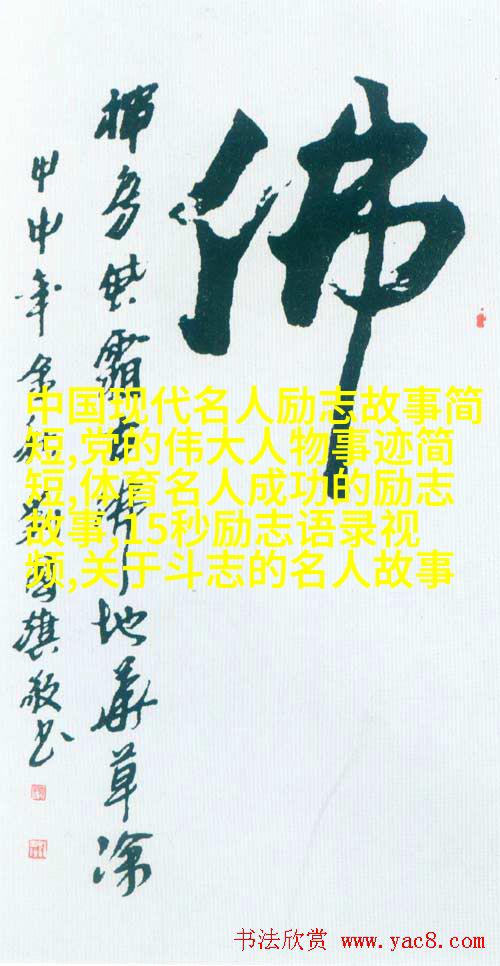 佛
霜 地華草
甲申年金秋 國旗敬书
中国现代名人励志故事简
短,党的伟大人物事迹简
短,体育名人成功的励志
故事,15秒励志语录视
频,关于斗志的名人故事
书法欣赏 www.yac8.com